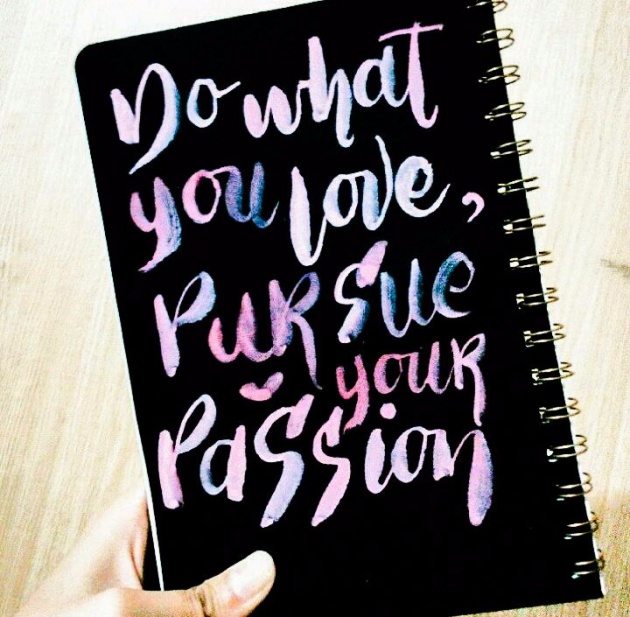 Do what
you love,
PuRSue
youR
PaSSion